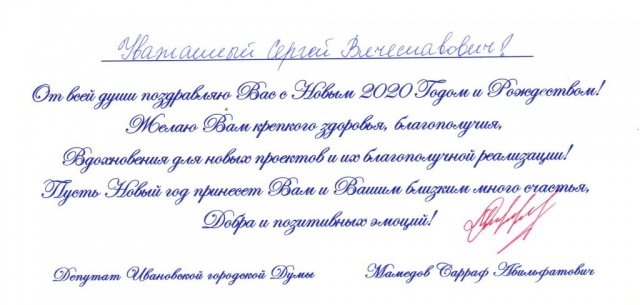 Уважаемый Сергей Вячеславович!
От всей души поздравляю Вас с Новым 2020 Годом и Рождеством!
Желаю Вам крепкого здоровья, благополучия,
Вдохновения для новых проектов и их благополучной реализации!
Пусть Новый год принесет Вам и Вашим близким много счастья,
Добра и позитивных эмоций!
Депутат Ивановской городской Думы Мамедов Сарраф Абильфатович